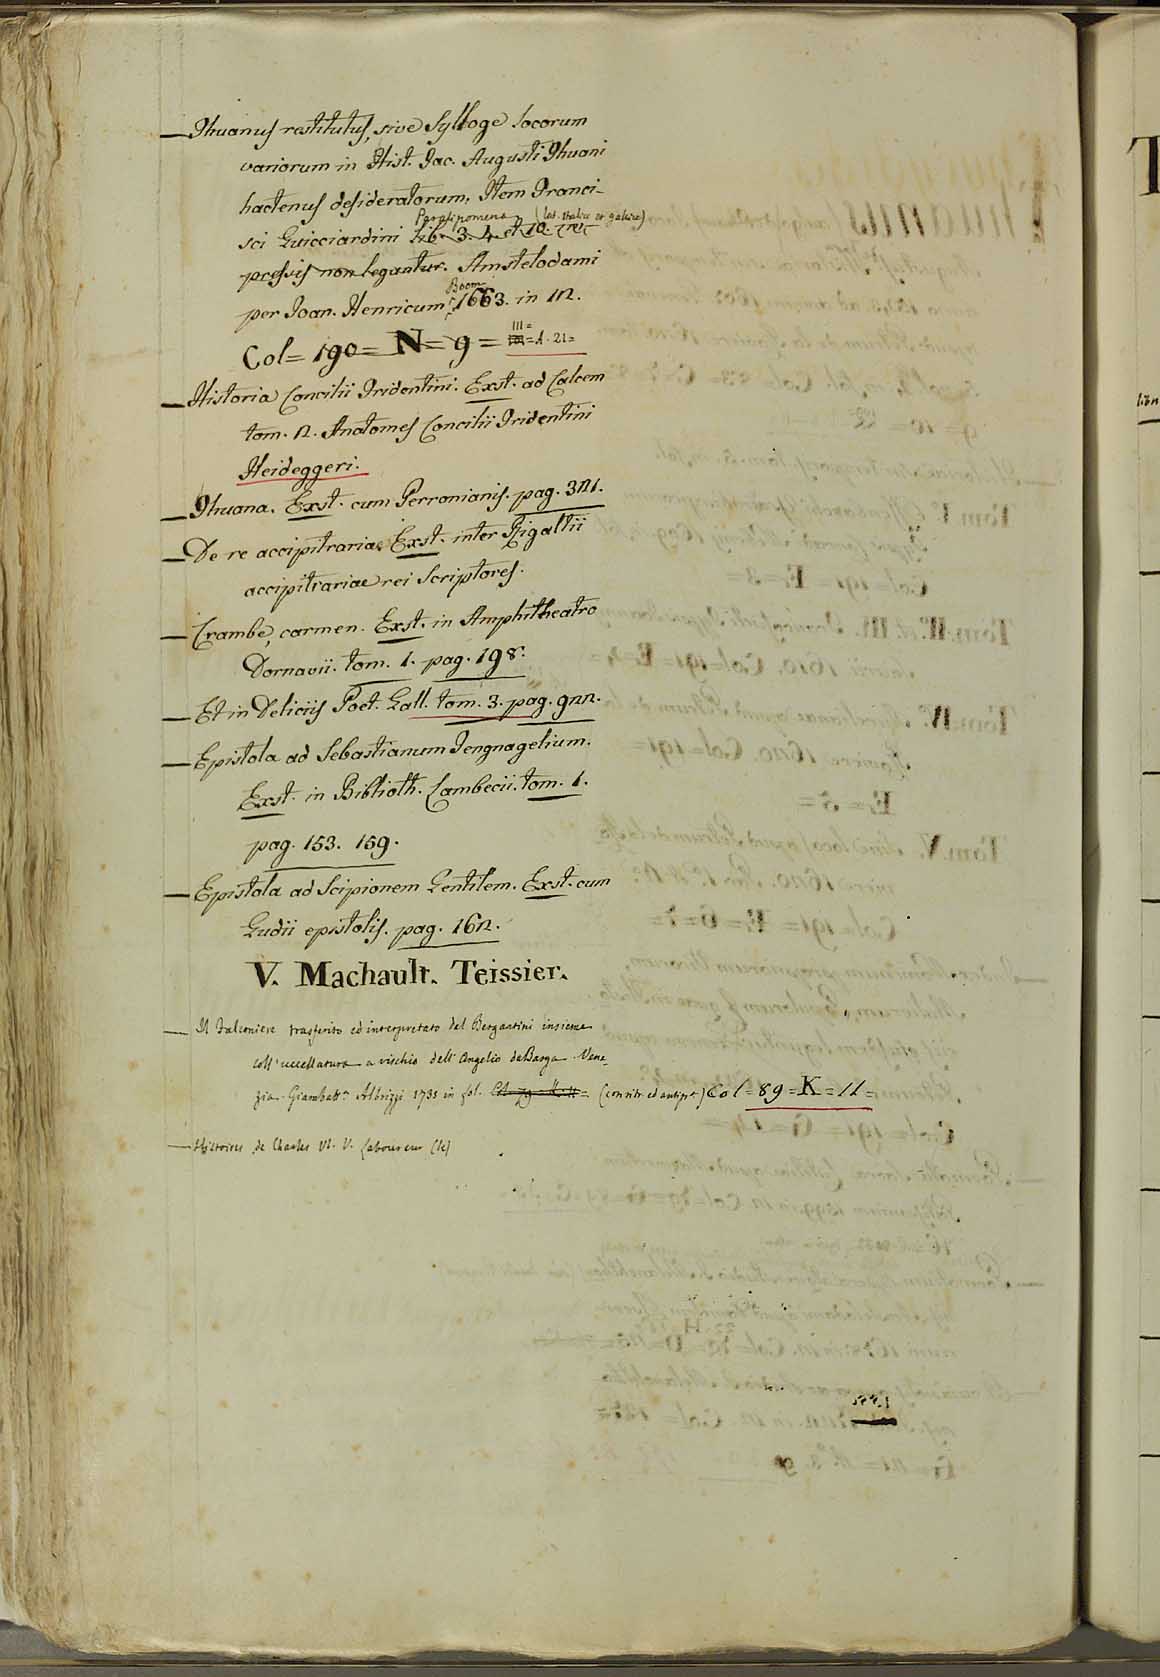 — Thuanus restitutus, sive Sylloge locorum
variorum in Hist. Jac. Augusti Thuani
hactenus desideratorum, Item Franci-
Paralipomena (lat. italice et gallice)
sci Guicciardini Lib. 3. 4. et 10.
pressis non leguntur. Amstelodami
Boom
per Joan. Henricum 1663. in 12.
III=
Col= 190= N= 9 = = A. 21=
— Historia Concilii Tridentini. Exst. ad Calcem
tom. 2. Anatomes Concilii Tridentini
Heideggeri.
— Thuana. Exst. cum Perronianis. pag. 321.
— De re accipitraria. Exst. inter Rigaltii
accipitrariae rei Scriptores.
— Crambe, carmen. Exst. in Amphitheatro
Dornavii. tom. 1. pag. 198.
— Et in Deliciis Poet. Gall. tom. 3. pag. 922.
— Epistola ad Sebastianum Tengnagelium.
Exst. in Biblioth. Lambecii. tom. 1.
pag. 153. 159.
— Epistola ad Scipionem Gentilem. Exst. cum
Gudii epistolis. pag. 162.
V. Machault. Teissier.
— Il Falconiere trasferito ed interpretato del Bergantini insieme
coll' uccellatura a vischio dell' Angelio da Barga Vene-
zia. Giambatt.a Albrizzi 1735 in fol. Col= 79= K= 11= (con ritr. ed antip.e) Col= 89= K= 11=
— Histoires de Charles VI. V. Laboureur (le)